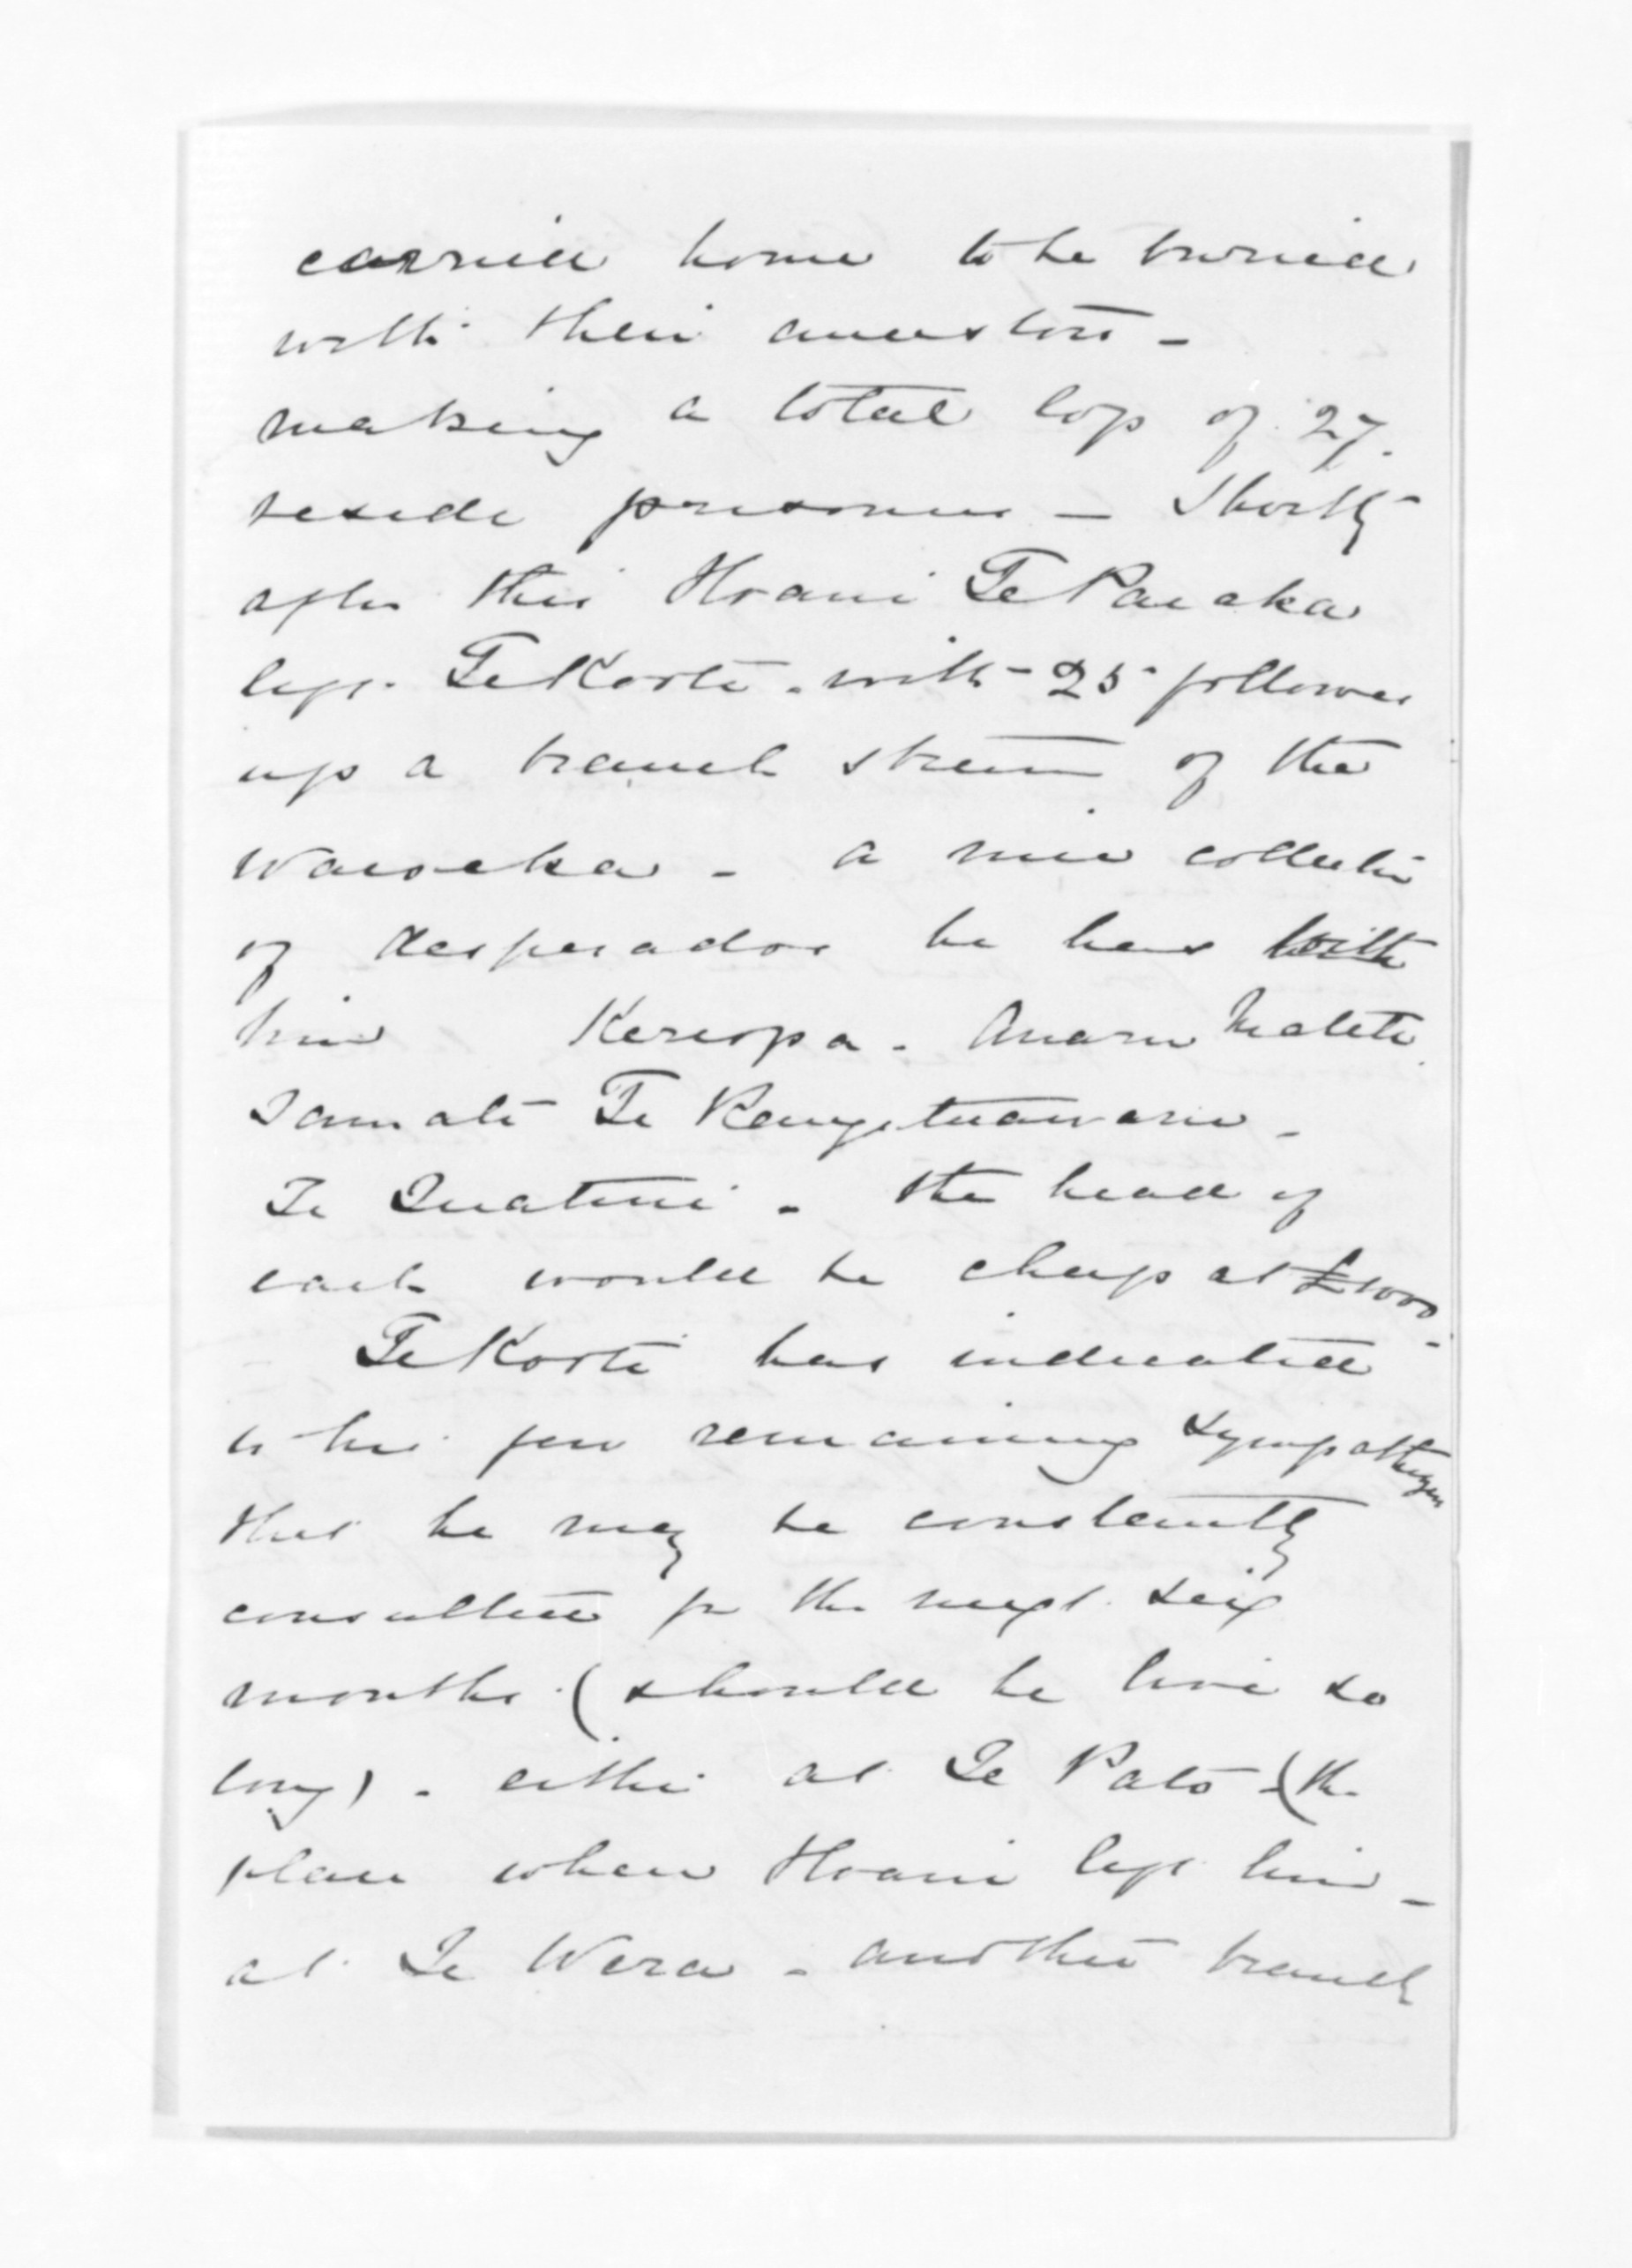 carried home to be buried
with their ancestors -
making a total loss of 27.
beside prisoners - Shortly
after this Hoani Te Paeaka
left Te Kooti - with 25 follower
up a branch stream of the
Waioeka - a nice collectin
of desperados he has with
him Kereopa. Anaru Matete
Tamati Te Rangituawaru -
Te Tuatini - the head of
each would be cheap at £1000 -
Te Kooti has indicated
to his few remaining sympathizers
that he may be constantly
consulted for the next six
months (should he live so
long) - either at Te Pato - (the
place where Hoani left him -
at Te Wera - another branch